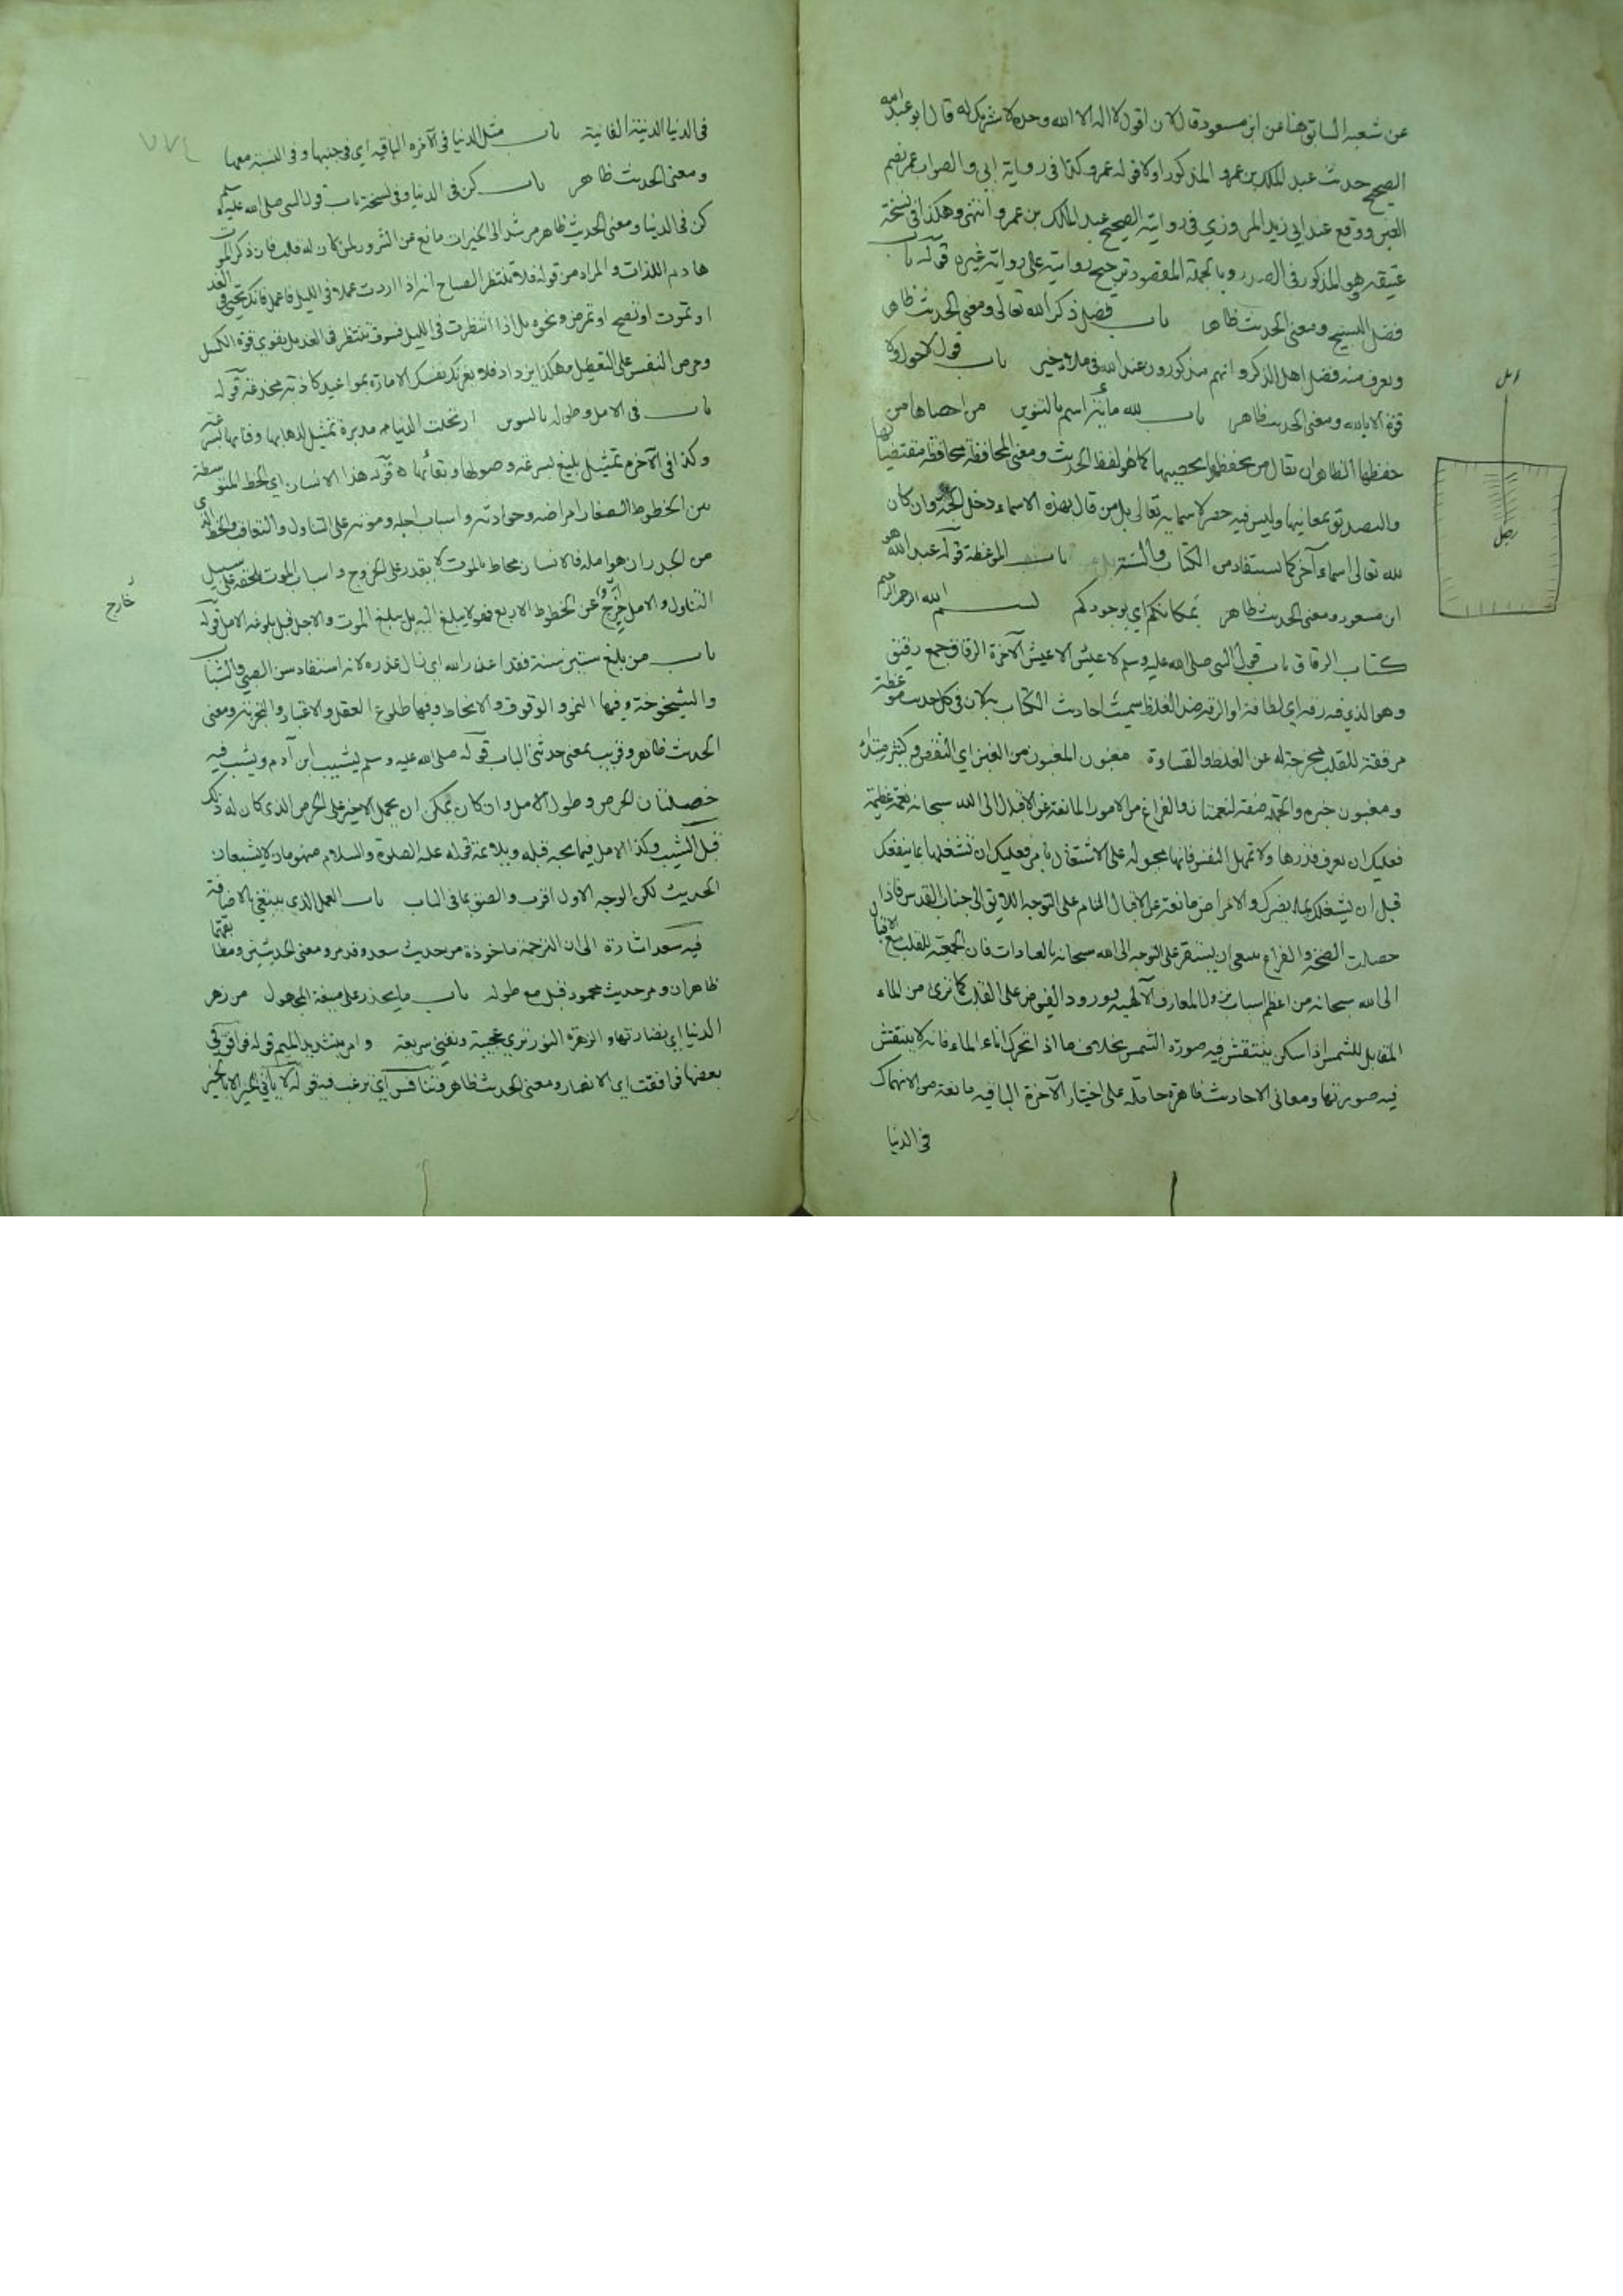 عن شعبه السابق هنا عن ابن مسعود قال لان اقول لا اله الا الله وحده لا شريك له قال ابو عبد الله
الصحيح حديث عبد الملك بن عمرو المذكور اولا قوله عمرو كذا في رواية ابي والصواب عمر بضم
العين ووقع عند ابي زيد المروزي في روايته الصحيح عبد الملك بن عمرو انتهى وهكذا في نسخة
عتيقه وهو المذكور في الصدر وبالجملة المقصود ترجيح روايته على رواية غيره قوله باب
فضل التسبيح ومعنى الحديث ظاهر باب فضل ذكر الله تعالى ومعنى الحديث ظاهر
ويعرف منه فضل اهل الذكر وانهم مذكورون عند الله في ملاء خير باب قول لا حول ولا
قوة الا بالله ومعنى الحديث ظاهر باب لله مائة اسم بالتنوين من احصاها من
حفظها الظاهر ان يقال من يحفظها يحصيها كما هو لفظ الحديث ومعنى المحافظة محافظة مقتضياتها
والتصديق بمعانيها وليس فيه حصر لاسمائه تعالى بل من قال بهذه الاسماء دخل الجنة وان كان
لله تعالى اسماء آخر كما يستفاد من الكتاب والسنة باب الموعظة قوله عبد الله هو
ابن مسعود ومعنى الحديث ظاهر بمكانكم اي بوجودكم بسم الله الرحمن الرحيم
كتاب الرقاق باب قول النبي صلى الله عليه وسلم لا عيش الا عيش الآخرة الرقاق جمع رقيق
وهو الذي فيه رقة اي لطافة او الرقة ضد الغلظ سميت احاديث الكتاب به لان في كل حديث موعظة
مرققة للقلب مخرجة له عن الغلظ والقساوة مغبون المغبون من الغبن اي النقص وكثير مبتداء
ومغبون خبره والجملة صفة لنعمتان والفراغ من الامور المانعة عن الاقبال الى الله سبحانه نعمة عظيمة
فعليك ان تعرف قدرها ولا تمهل النفس فانها مجبولة على الاشتغال بامر فعليك ان تشغلها بما ينفعك
قبل ان يشغلك بما يضرك والامراض مانعة عن الاقبال التام على التوجه اللايق الى جناب القدس فاذا
حصلت الصحة والفراغ ينبغي ان يستقر على التوجه الى الله سبحانه بالعبادات فان الجمعية للقلب مع الاقبال
الى الله سبحانه من اعظم اسباب نزول المعارف الآلهية وورود الفيوض على القلب كما ترى من الماء
المقابل للشمس اذا سكن ينتقش فيه صورة الشمس بخلاف ما اذا تحرك اناء الماء فانه لا ينتقش
فيه صورتها ومعاني الاحاديث ظاهرة حاملة على اختيار الآخرة الباقية مانعة من الانهماك
في الدنيا
امل
رجل
٧٧٤
في الدنيا الدنية الفانية باب مثل الدنيا في الآخرة الباقية اي في جنبها وفي النسبة معها
ومعنى الحديث ظاهر باب كن في الدنيا وفي نسخة باب قول النبي صلى الله عليه وسلم
كن في الدنيا ومعنى الحديث ظاهر مرشد الى الخيرات مانع عن الشرور لمن كان له قلب فان ذكر الموت
هادم اللذات والمراد من قوله فلا تنتظر الصباح انه اذا اردت عملا في الليل فاعمل فانك تحيى في الغد
او تموت او تصح او تمرض ونحوه بل اذا انتظرت في الليل فسوف تنتظر في الغد بل يقوى قوة الكسل
وحرص النفس على التعطيل وهكذا يزداد فلا يغرنك نفسك الامارة بمواعيد كاذبة مخدعة قوله
باب في الامل وطوله بالتنوين ارتحلت الدنيا مدبرة تمثيل لذهابها وفنائها بسرعة
وكذا في الآخرة تمثيل بليغ لسرعة وصولها وبقائها قوله هذا الانسان اي الخط المتوسطة
من الخطوط الصغار امراضه وحوادثه واسباب اجله وموته على التناول والتعاقب والخط الذي
من الجدران هو امله فالانسان محاط بالموت لا يقدر على الخروج واسباب الموت يلحقه على سبيل
التناول والامل خارج عن الخطوط الاربع فهو لا يبلغ اليه بل يبلغ الموت والاجل قبل بلوغه الامل قوله
خارج
باب من بلغ ستين سنة فقد اعذر الله اي زال عذره لانه استفاد سن الصبي والشباب
والشيخوخة وفيها النمو والوقوف والانحطاط وفيها طلوع العقل والاعتبار والتجربة ومعنى
الحديث ظاهر وقريب بمعنى حديثي الباب قوله صلى الله عليه وسلم يشيب ابن آدم ويشب فيه
خصلتان الحرص وطول الامل وان كان يمكن ان يحمل الاخير على الحرص الذي كان له ذلك
قبل الشيب وكذا الامل فيما يحبه قبله ويلائمه قوله عليه الصلوة والسلام منهومان لا يشبعان
الحديث لكن الوجه الاول اقرب والصق بما في الباب باب العمل الذي يبتغي بالاضافة
فيه سعد اشارة الى ان الترجمة ماخوذة من حديث سعد وقد مر ومعنى الحديثين
ظاهران ومر حديث محمود قبل مع طوله باب ما يحذر على صيغة المجهول من زهر
الدنيا اي نضارتها والزهرة النور تري عجيبة وتفنى سريعة وامر بتشديد الميم قوله فوافق في
بعضها فوافقت اي الانصار ومعنى الحديث ظاهر فتنافس اي ترغب فيه قوله لا ياتي الخير الا بالخير